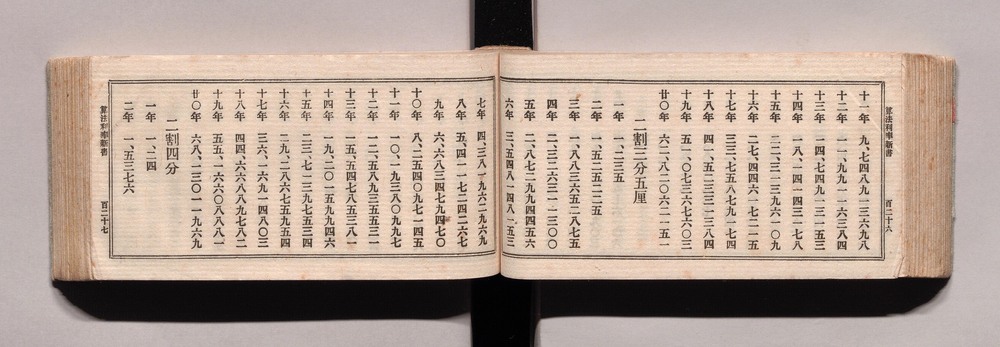 算法利率新書 百二十六
十一年 九、七四八九一三六九八
十二年 一一、九九一一六三八四
十三年 一四、七四九一三一五三
十四年 一八、一四一四三一七八
十五年 二二、三一三九六一〇九
十六年 二七、四四六一七二一五
十七年 三三、七五八七九一七四
十八年 四一、五二三三一三八四
十九年 五一、〇七三六七六〇三
廿〇年 六二、八二〇六二一五一
二割三分五厘
一年 一、二三五
二年 一、五二五二二五
三年 一、八八三六五二八七五
四年 二、三二六三一一三〇〇
五年 二、八七二九九四四五六
六年 三、五四八一四八一五三
七年 四、三八一九六二九六九
八年 五、四一一七二四二六七
九年 六、六八三四七九四七〇
十〇年 八、二五四〇九七一四五
十一年 一〇、一九三八〇九九七
十二年 一二、五八九三五五三一
十三年 一五、五四七八五三八一
十四年 一九、二〇一五九九四六
十五年 二三、七一三九七五三四
十六年 二九、二八六七五九五四
十七年 三六、一六九一四八〇三
十八年 四四、六六八八九七八二
十九年 五五、一六六〇八八八一
廿〇年 六八、一三〇一一九六九
二割四分
一年 一、二四
二年 一、五三七六
算法利率新書 百二十七